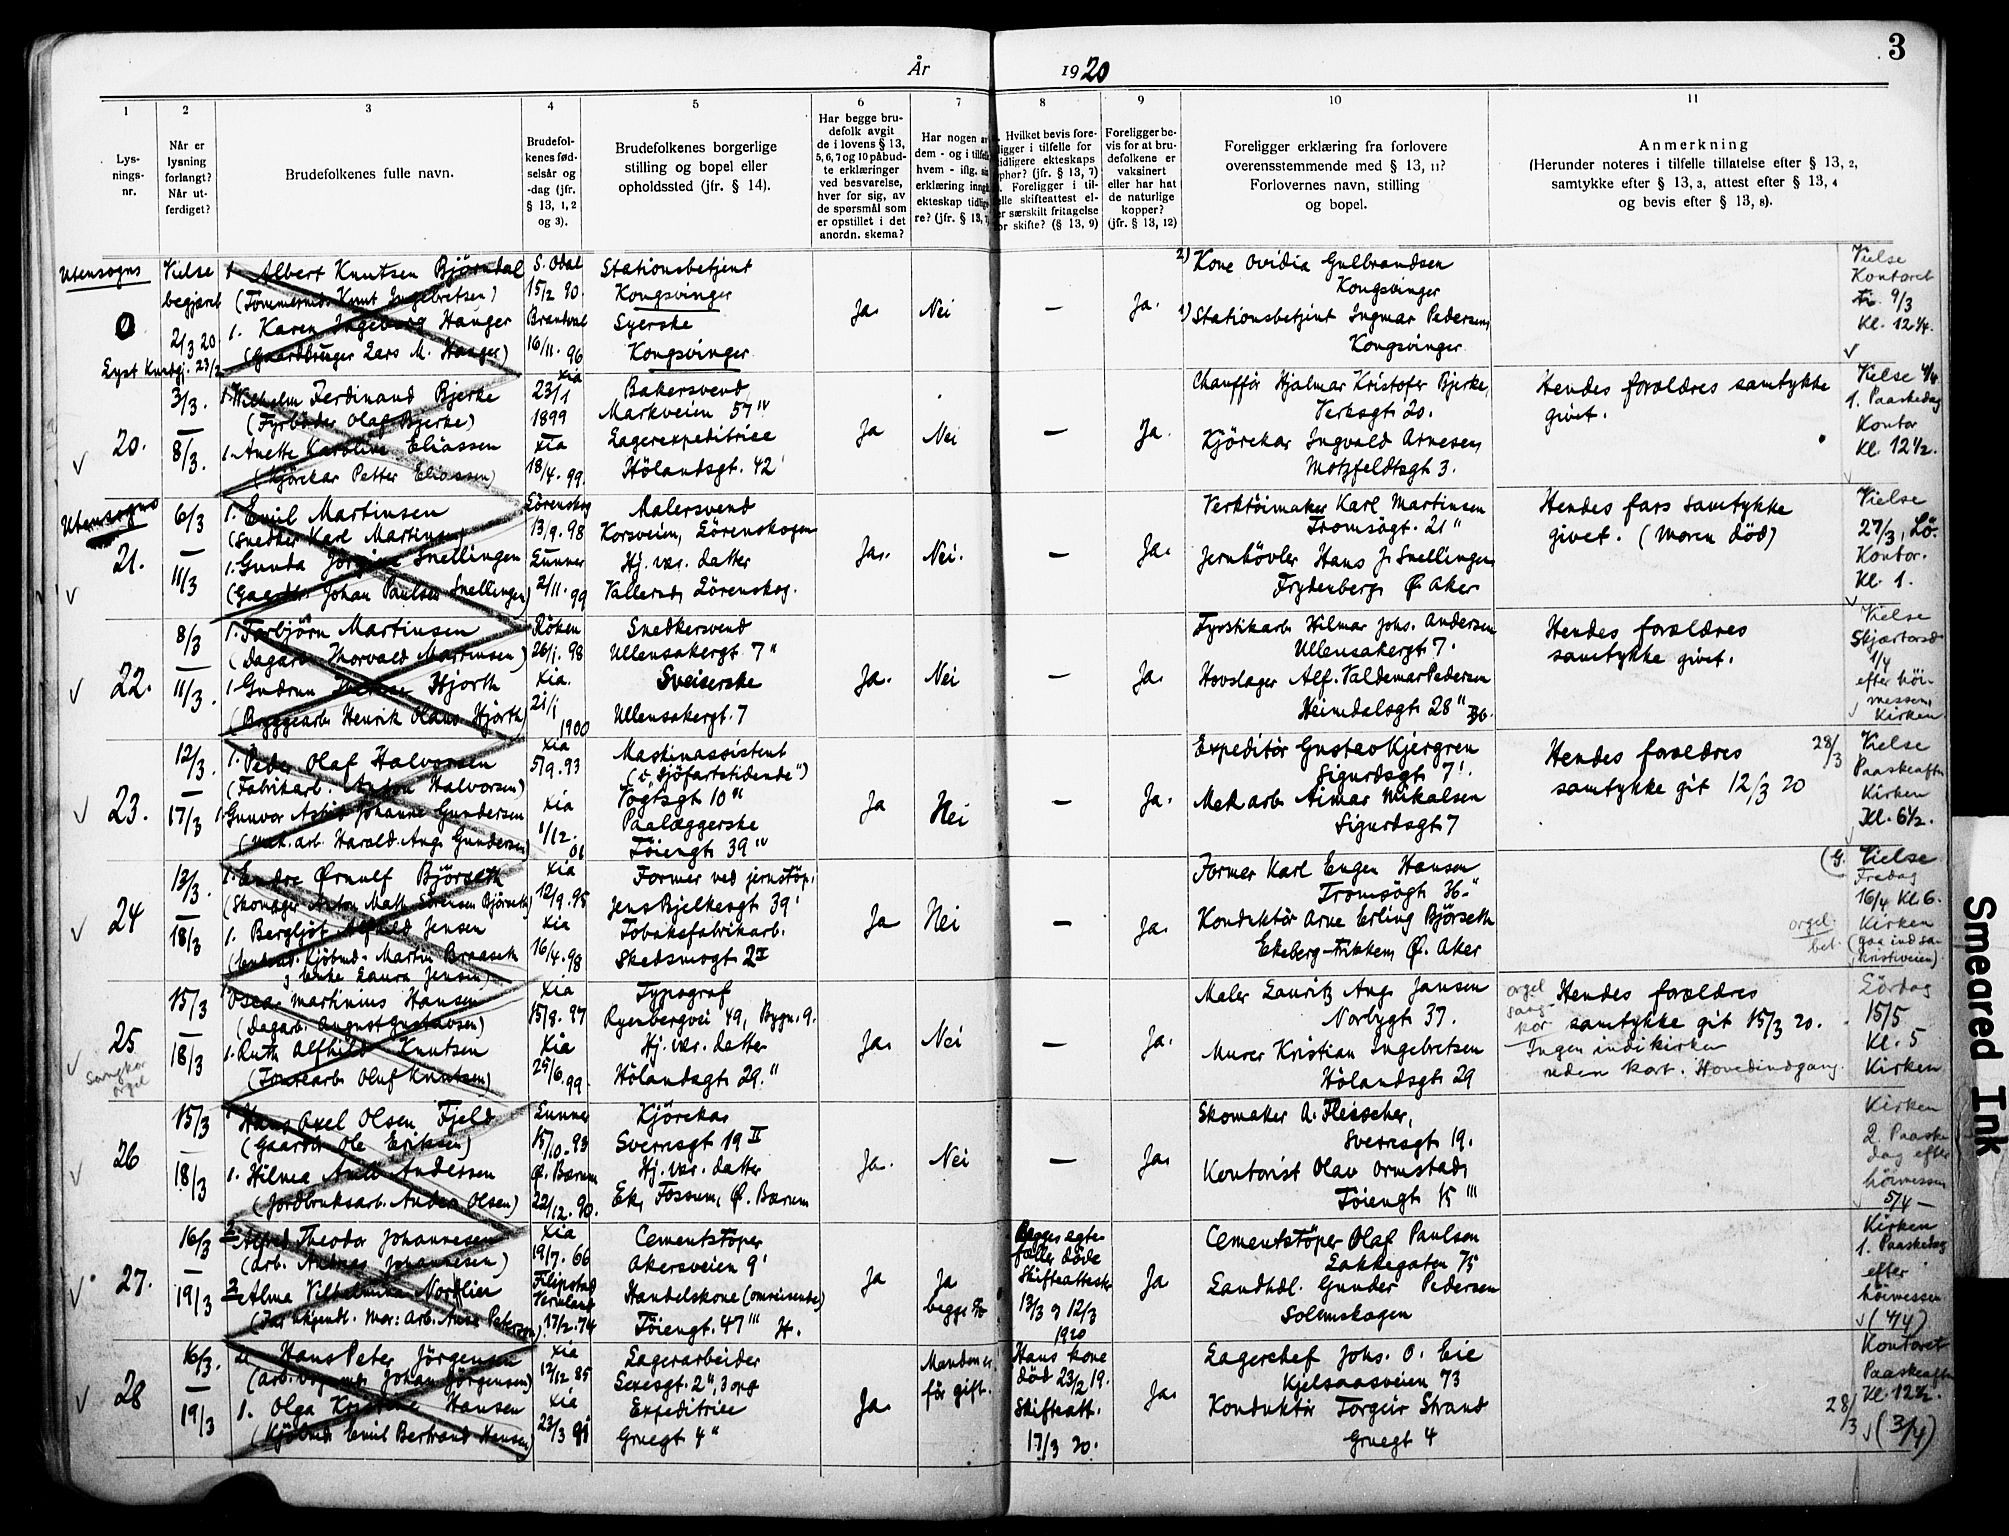 3
År 1920
1
2
3
4
5
6
7
8
9
10
11
Lys-
nings-
nr.
Når er
lysning
forlangt?
Når ut-
ferdiget?
Brudefolkenes fulle navn.
Brudefol-
kenes fød-
selsår og
-dag (jfr.
§ 13, 1, 2
og 3).
Brudefolkenes borgerlige
stilling og bopel eller
opholdssted (jfr. § 14).
Har begge bru-
defolk avgit
de i lovens § 13,
5, 6, 7 og 10 påbud-
te erklæringer
ved besvarelse,
hver for sig, av
de spørsmål som
er opstillet i det
anordn. skema?
Har nogen av
dem - og i tilfelle
hvem - iflg. sin
erklæring inngått
ekteskap tidlige-
re? (jfr. § 13,
Hvilket bevis fore-
ligger i tilfelle for
tidligere ekteskaps
ophør? (jfr. § 13, 7)
Foreligger i til-
felle skifteattest el-
ler særskilt fritagelse
for skifte? (§ 13, 9)
Foreligger be-
vis for at bru-
defolkene er
vaksinert
eller har hat
de naturlige
kopper?
(jfr. § 13, 12)
Foreligger erklæring fra forlovere
overensstemmende med § 13, 11?
Forlovernes navn, stilling
og bopel.
Anmerkning
(Herunder noteres i tilfelle tillatelse efter § 13, 2,
samtykke efter § 13, 3, attest efter § 13, 4
og bevis efter § 13, 8).
Utensogns
0
Vielse
begjæret
2/3 20
Lyst Kundgj. 23/2
1. Albert Knutsen Björndal
(Tömmerm. Knut Ingebretsen)
1. Karen Ingeborg Hauger
(Gaardbruger Lars M. Hauger)
S. Odal
15/2 90.
Brandval
16/11. 96
Stationsbetjent
Kongsvinger
Syerske
Kongsvinger
Ja.
Nei
—
Ja.
2) Kone Ovidia Gulbrandsen
Kongsvinger
1) Stationsbetjent Ingmar Pedersen,
Kongsvinger
Vielse
Kontoret
9/3
Kl. 12¼.
20.
3/3.
8/3.
1. Wilhelm Ferdinand Bjerke
(Fyrböder Olaf Bjerke)
1. Anette Karoline Eliassen
(Kjörekar Petter Eliassen)
Xia
23/1
1899
Xia
18/4. 99.
Bakersvend
Markveien 57 IV
Lagerexpeditrice
Hölandsgt. 42'
Ja
Nei
—
Ja.
Chaufför Hjalmar Kristofer Bjerke,
Verksgt 20.
Kjörekar Ingvald Arnesen,
Motzfeldtsgt 3.
Hendes forældres samtykke
givet.
Vielse 4/4
1. Paaskedag
Kontor
Kl. 12½.
Utensogns
21.
6/3
11/3
1. Emil Martinsen
(Snedker Karl Martinsen)
1. Gunda Jörgine Snellingen
(Gaardbr. Johan Paulsen Snellingen)
Lörenskog
13/9. 98
Lunner
2/11. 99
Malersvend
Korsveien, Lörenskogen
Hj. vær. datter
Vallerud, Lörenskog.
Ja.
Nei.
—
Ja.
Verktöimaker Karl Martinsen
Tromsögt. 21 "
Jernhövler Hans J. Snellingen
Frydenberg, Ø. Aker
Hendes fars samtykke
givet. (Moren död)
Vielse
27/3, Lö.
Kontor.
Kl. 1.
22.
8/3
11/3.
1. Torbjörn Martinsen
(Dagarb. Thorvald Martinsen)
1. Gudrun Hjorth
(Bryggearb. Henrik Olaus Hjorth)
Röken
26/1. 98
Xia.
21/1
1900
Snedkersvend
Ullensakergt. 7 "
Sveiserske
Ullensakergt. 7
Ja.
Nei
—
Ja.
Fyrstikarb. Hilmar Johs. Andersen
Ullensakergt 7.
Hovslager Alf. Valdemar Pedersen
Heimdalsgt. 28 "
Hendes forældres
samtykke givet.
Vielse
Skjærtorsd.
1/4
efter höi-
messen,
Kirken
23.
12/3.
17/3
1. Peder Olaf Halvorsen
(Fabrikarb. Anton Halvorsen)
1. Gunvor Astrid Johanne Gundersen
(Mek. arb. Harald Aug. Gundersen)
Xia
5/9. 93
Xia
1/12.
01
Maskinassistent
(i „Sjöfartstidende")
Togtsgt 10 "
Paalæggerske
Töiengt. 39 IV
Ja
Nei
—
Ja.
Expeditör Gustav Kjergren
Sigurdsgt 7'.
Mek arb. Aimar Mikalsen
Sigurdsgt 7
Hendes forældres
samtykke git 12/3 20
28/3
Vielse
Paaskeaften
Kirken
Kl. 6½.
24
13/3.
18/3
1. Endre Ørnulf Björseth
(Skomager Anton Math. Sörensen Björseth)
1. Bergljot Alfhild Jensen
(Kjöbmd. Martin Braaseth
og Enke Laura Jensen)
Xia
12/9. 95
Xia
16/4. 98
Former ved jernstöp.
Jens Bjelkesgt 39'
Tobaksfabrikarb.
Skedsmogt. 2 II
Ja
Nei
—
Ja.
Former Karl Eugen Hansen
Tromsögt. 36. "
Konduktör Arne Erling Björseth
Ekeberg-, Ø. Aker
(G.
Vielse
Fredag
16/4 Kl 6.
Kirken
orgel
bet.
25
Sangkor
orgel
15/3
18/3
Oscar Martinius Hansen
(Dagarb. August Gustavsen)
1. Ruth Alfhild Knutsen
(Tomtearb. Oluf Knutsen)
Xia
15/8. 97
Xia
25/6. 99.
Typograf
Ryenbergvei 49, Bygn. 9.
Hj. vær. datter
Hölandsgt. 29. "
Ja.
Nei
—
Ja.
Maler Lauritz Aug. Jansen
Norbygt. 37.
Murer Kristian Ingebretsen
Hölandsgt. 29
orgel
sang
kor
Hendes forældres
samtykke git 15/3 20.
Ingen ind i kirken
uden kort. Hovedindgang.
Lördag
15/5
Kl. 5
Kirken
26
15/3
18/3
Hans Axel Olsen Fjeld
(Gaardbr. Ole Eriksen)
1. Hilma Andersen
(Jordbruksarb. Anders Olsen)
Lunner
15/10. 93
Ø. Bærum
22/12. 90.
Kjörekar
Sverresgt 19 II
Hj. vær. datter
Ek, Fossum, Ø. Bærum
Ja.
Nei
—
Ja.
Skomaker A. Fleischer,
Sverresgt 19.
Kontorist Olav Ormstad,
Töiengt 15 '''
Kirken
2. Paaske
dag efter
höimessen
5/4 —
27.
16/3
19/3
2. Alfred Theodor Johannesen
(Arb. Andreas Johannesen)
2. Alma Vilhelmina Nordlien
(Far ukjendt. Mor: Arb. Anna Peterson)
Xia
19/7. 66
Filipstad
Vermland
17/2. 74
Cementstöper
Akersveien 9'
Handelskone (omreisende)
Töiengt. 47 ''' H.
Ja
Ja
begge to
Begges egte-
fæller döde
Skifteattester
13/3 og 12/3
1920
Ja
Cementstöper Olaf Paulsen
Lakkegaten 75
Landhdl. Gunder Pedersen
Solumskogen
Kirken
1. Paaskedag
efter
höimessen
(4/4)
28
16/3.
19/3
2. Hans Peter Jörgensen
(Arb. Johan Jörgensen)
1. Olga Kristine Hansen
(Kjöbmd. Emil Bertrand Hansen)
Xia
12/12 85
Xia
23/3 98
Lagerarbeider
Sexesgt. 2", 3 opg
Expeditrice
Gruegt 4 "
Ja.
Manden er
för gift.
Hans kone
död 23/2 19.
Skifteatt.
17/3 20.
Ja.
Lagerchef Johs. O. Eie
Kjelsaasveien 73
Konduktör Torgeir Strand
Gruegt 4
Kontoret
Paaskeaften
Kl. 12½.
28/3
(3/4)
Smeared Ink